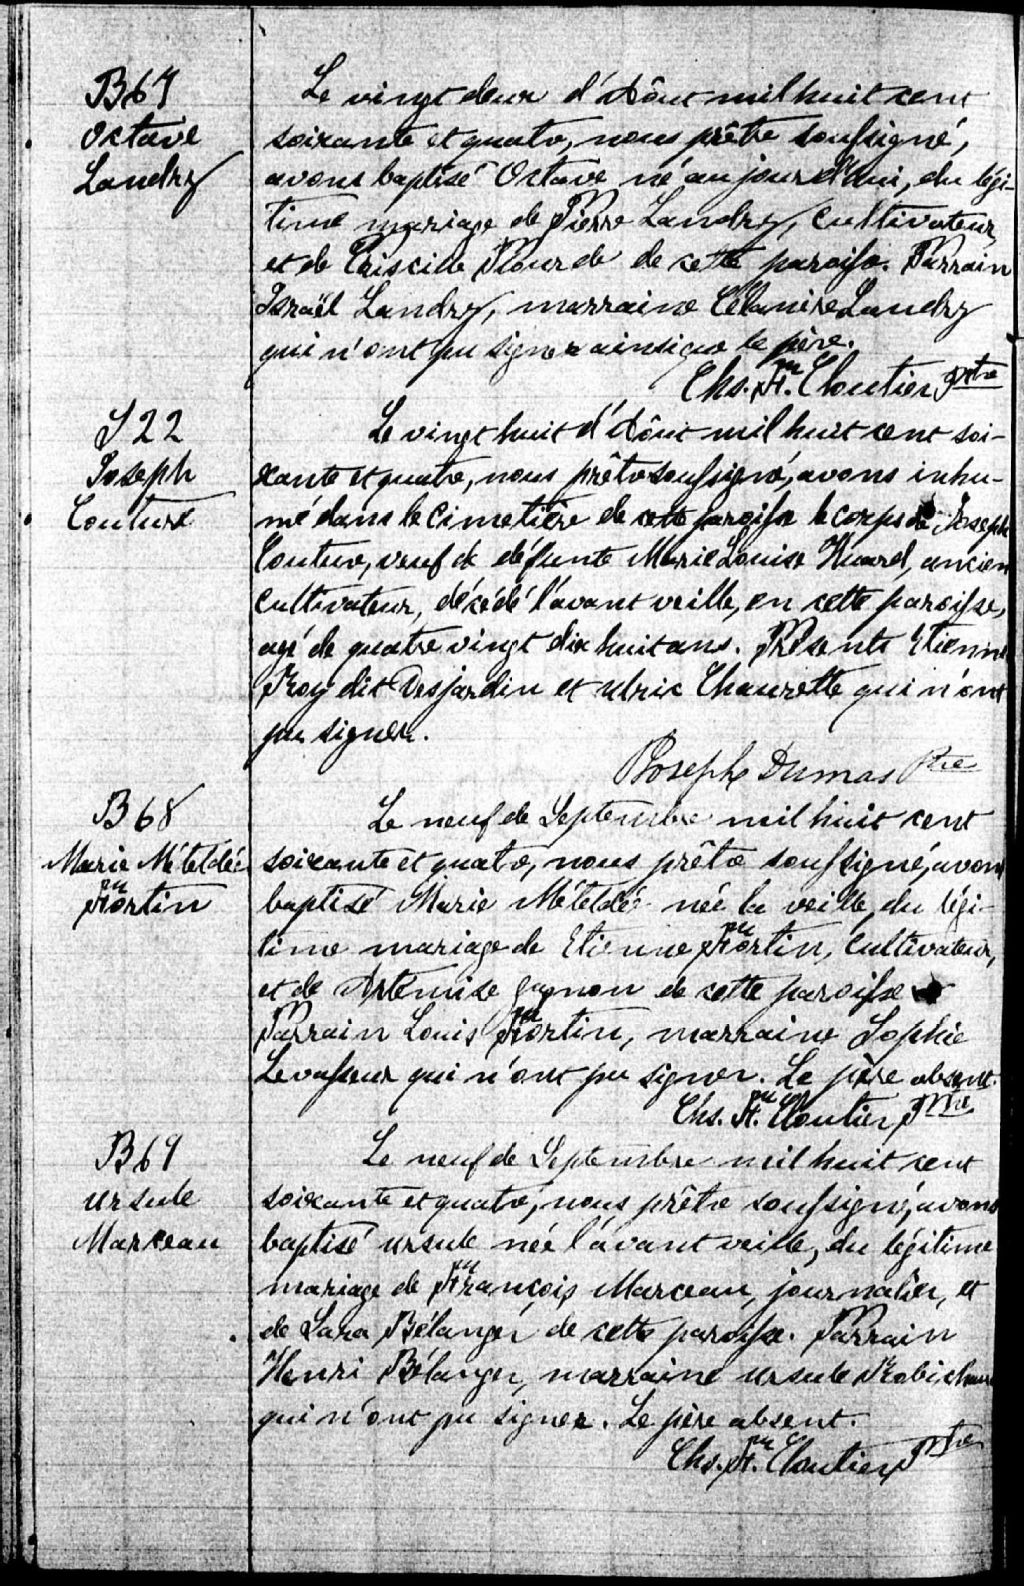 B67
Octave
Landry
Le vingt deux d'Août mil huit cent
soixante et quatre, nous prêtre soussigné,
avons baptisé Octave né aujourd'hui, du légi-
time mariage de Pierre Landry, Cultivateur,
et de Priscille Plourde de cette paroisse. Parrain
Israël Landry, marraine Célanire Landry
qui n'ont pu signer ainsi que le père.
Chs. F. Cloutier Ptre
S 22
Joseph
Couture
Le vingt huit d'Août mil huit cent soi-
xante et quatre, nous prêtre soussigné, avons inhu-
mé dans le Cimetière de cette paroisse le corps de Joseph
Couture, veuf de défunte Marie Louise Huard, ancien
Cultivateur, décédé l'avant veille, en cette paroisse,
agé de quatre vingt dix huit ans. Présents Etienne
Roy dit Desjardin et Ulric Chaurette qui n'ont
pu signer.
Joseph Dumas Ptre
B 68
Marie Mételdée
Fortin
Le neuf de Septembre mil huit cent
soixante et quatre, nous prêtre soussigné, avons
baptisé Marie Mételdée née la veille, du légi-
time mariage de Etienne Fortin, Cultivateur,
et de Artémise Gagnon de cette paroisse
Parrain Louis Fortin, marraine Sophie
Levasseur qui n'ont pu signer. Le père absent.
Chs. F. Cloutier Ptre
B69
Ursule
Marceau
Le neuf de Septembre mil huit cent
soixante et quatre, nous prêtre soussigné, avons
baptisé Ursule née l'avant veille, du légitime
mariage de François Marceau, journalier, et
de Sara Bélanger de cette paroisse. Parrain
Henri Bélanger, marraine Ursule Robichaud
qui n'ont pu signer. Le père absent.
Chs. F. Cloutier Ptre